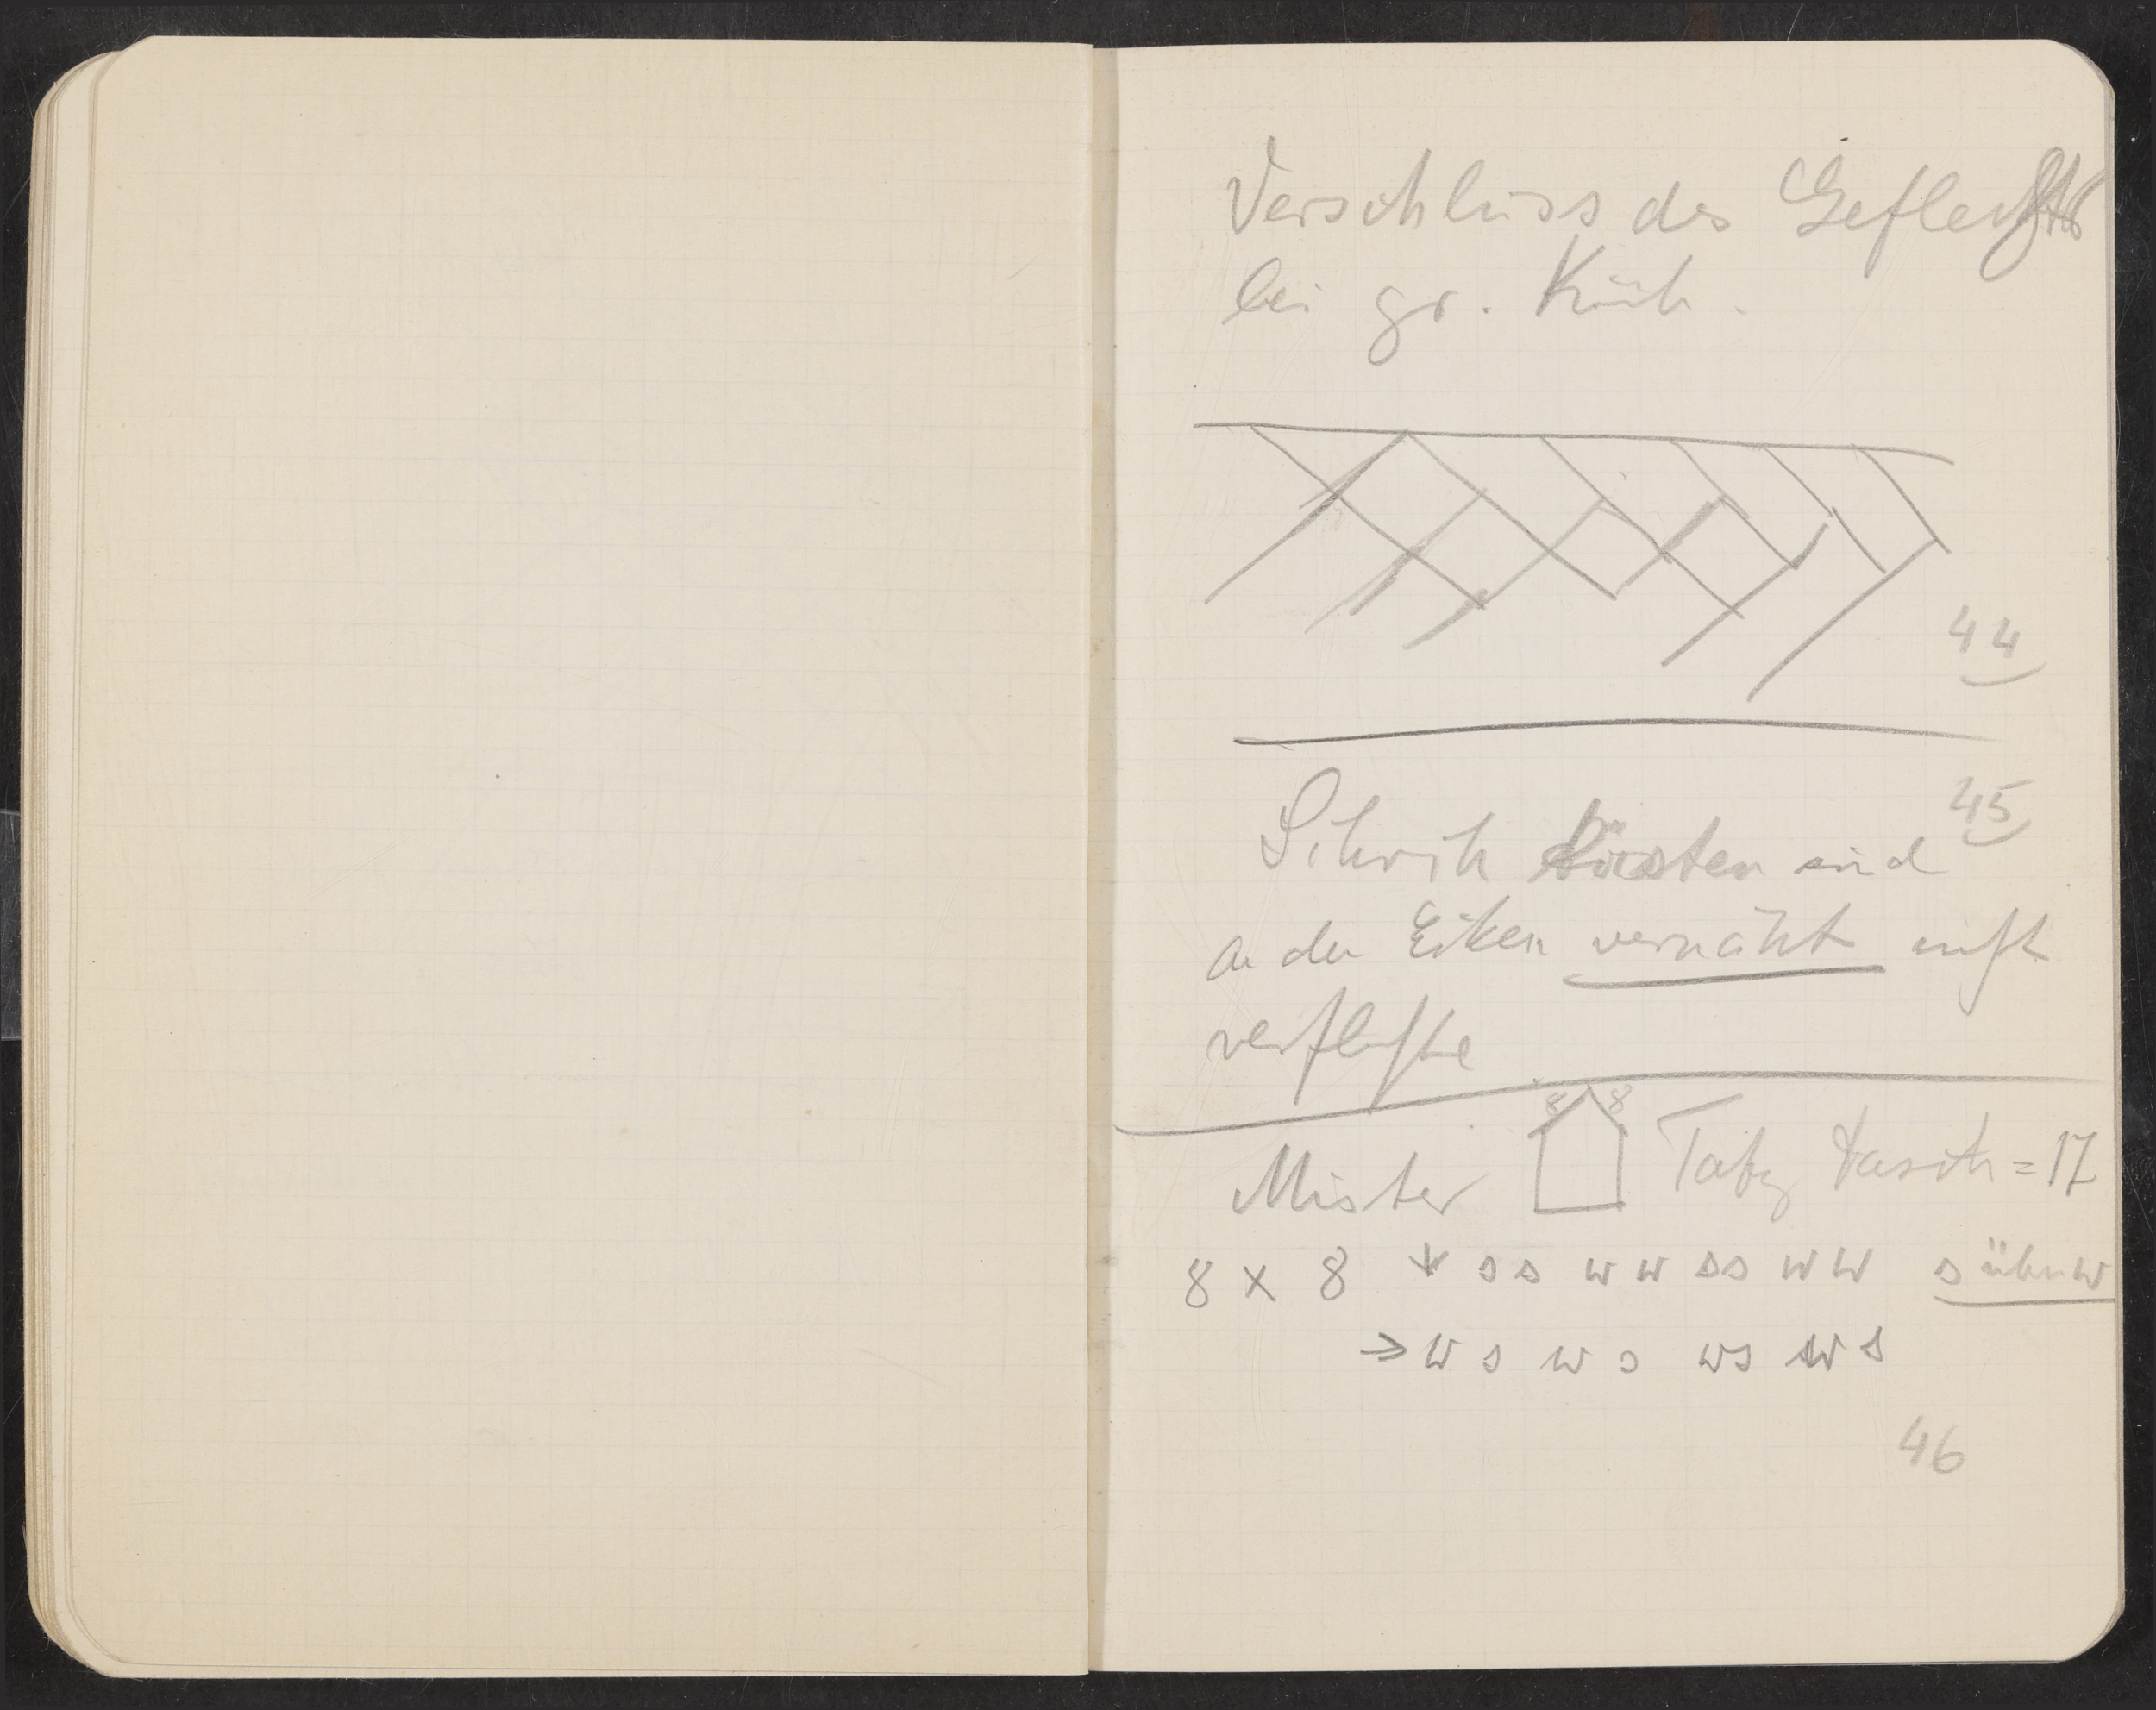 Verschluss des Geflechts
bei gr. Küh.
44
45
sind
an den Ecken vernäht nicht
verflochte
8 8
Muster Tabg tasch = 17
8 x 8 ↓ s s w w s s w w s über w
→ w s w s w s w s
46